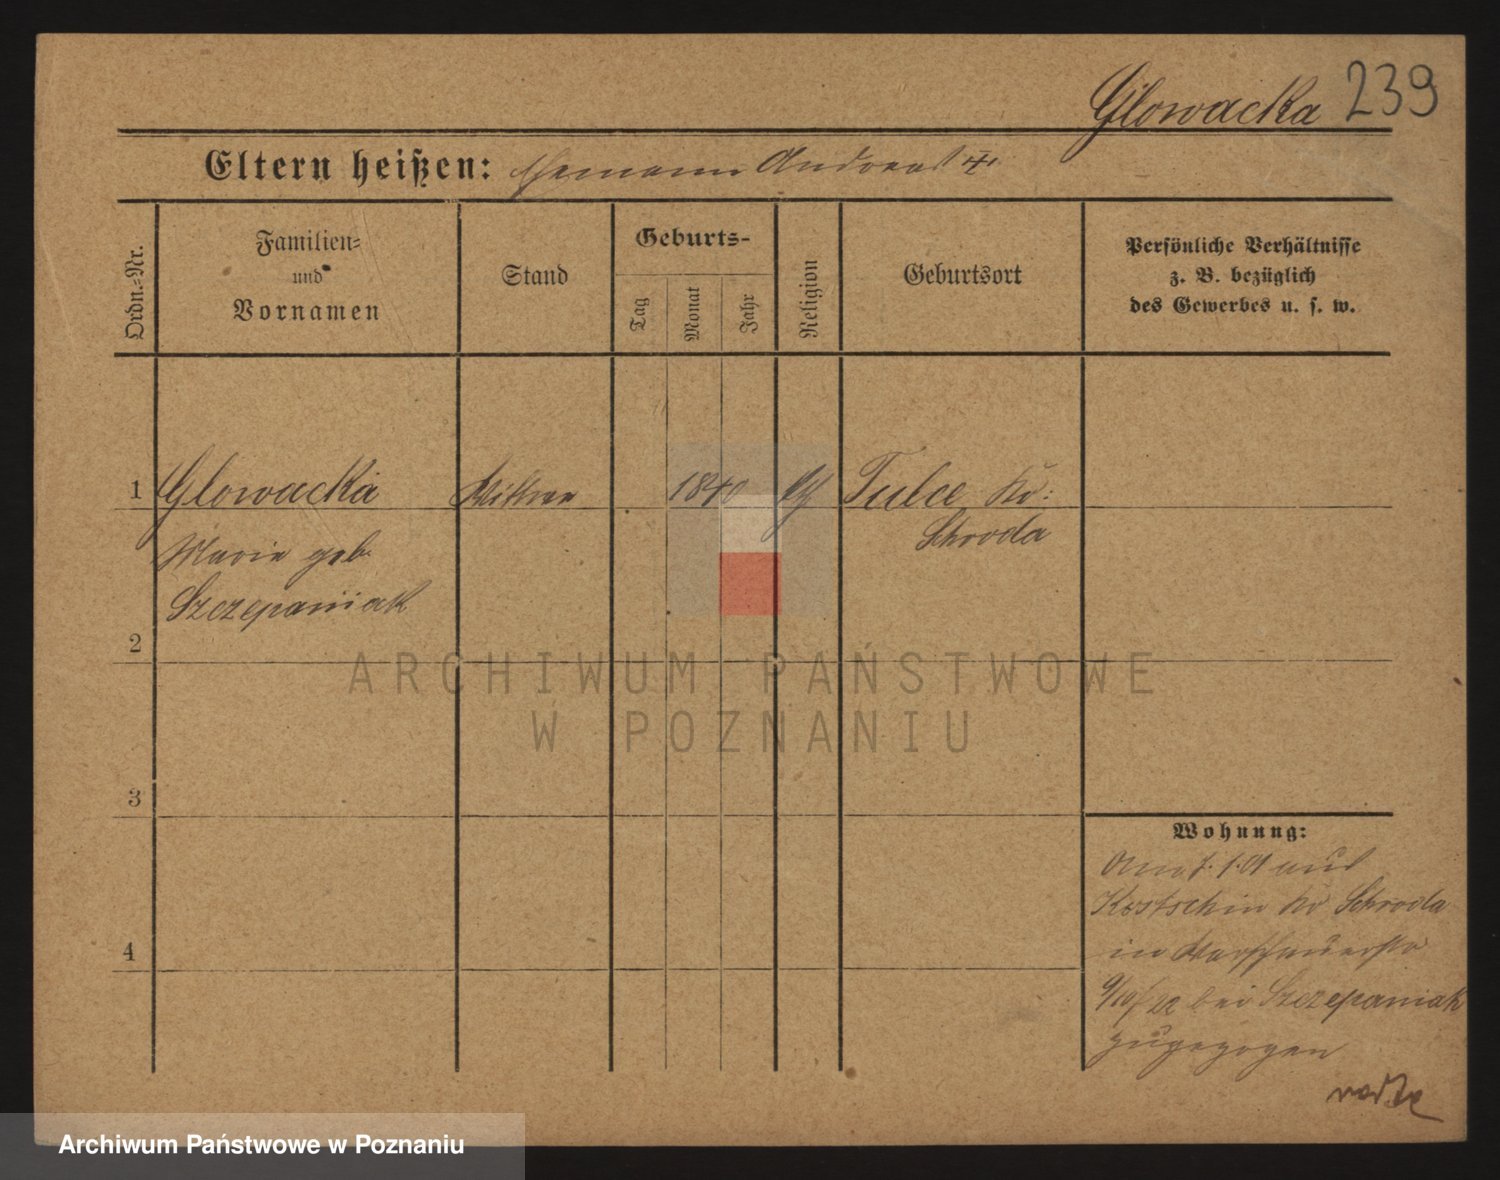 Glowacka 239
Eltern heißen: Ehemann Andreas
Ordn.-Nr.
Familien-
und
Vornamen
Stand
Geburts-
Tag
Monat
Jahr
Religion
Geburtsort
Persönliche Verhältnisse
z. B. bezüglich
des Gewerbes u. s. w.
1 Glowacka Wittwe 1840 Tulce Kr:
Schroda
Marie geb.
Szczepaniak
2
ARCHIWUM PAŃSTWOWE
W POZNANIU
3
4
Wohnung:
Am 7. 1. 01 aus
Kostschin Kr Schroda
in Warschauerstr
9/10/22 bei Szczepaniak
zugezogen
Archiwum Państwowe w Poznaniu